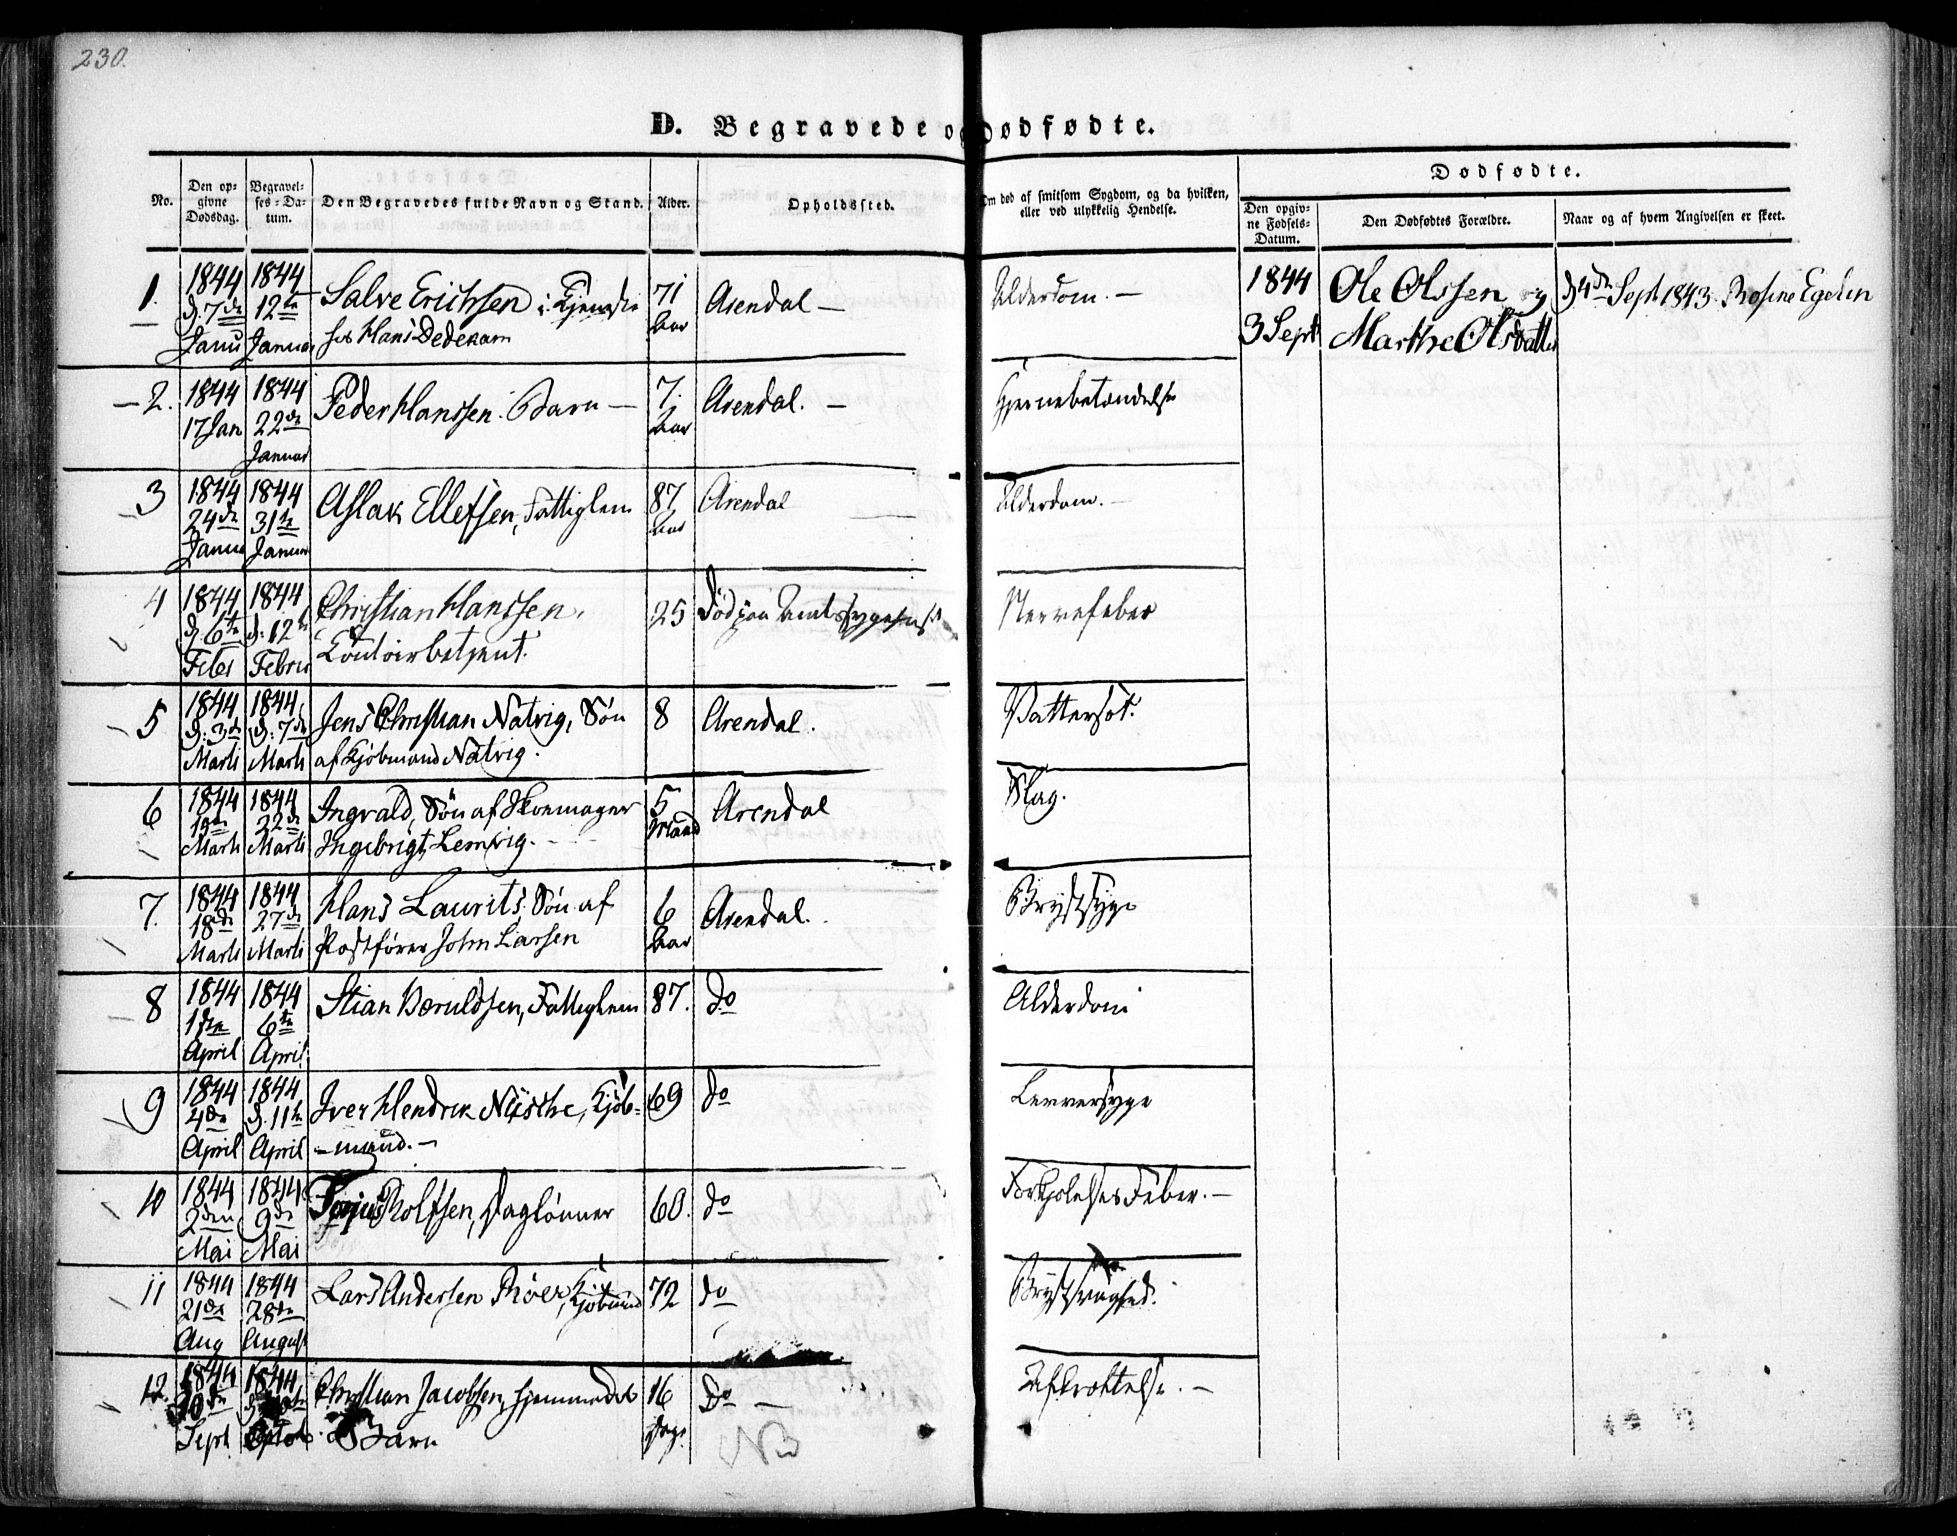 230.
D. Begravede og Dødfødte.
No.
Den op-
givne
Dødsdag.
Begravel-
ses-Da-
tum.
Den Begravedes fulde Navn og Stand.
Alder.
Opholdssted.
Om død af smitsom Sygdom, og da hvilken,
eller ved ulykkelig Hendelse.
Dødfødte.
Den opgiv-
ne Fødsels-
Datum.
Den Dødfødtes Forældre.
Naar og af hvem Angivelsen er skeet.
1. 1844 d. 7de Janu 1844 12te Januar Salve Erichsen i Tjeneste
hos Hans Dedekam 71 Aar Arendal — Alderdom. —
1844 3 Sept Ole Olssen og
Marthe Olsdatter d 4de Sept 1843. Rosine Egelin
2. 1844 17 Jan 1844 22de Januar Peder Hanssen. Barn — 7. Aar Arendal. — Hjernebetændelse
3 1844 24de Janua 1844 31te Januar Aslak Ellefsen, Fattiglem 87 Aar Arendal Alderdom. —
4 1844 d. 6te Feber 1844 d. 12te Febru Christian Hanssen,
Contoirbetjent. 25 Død paa Amtssygehuset Nervefeber
5 1844 d. 3de Marti 1844 d. 7de Marti Jens Christian Natvig, Søn
af Kjøbmand Natvig. 8 Arendal. Vattersot.
6 1844 Marti 1844 22de Marti Ingvald, Søn af Skomager
Ingebrigt Lemvig. 5 Maand Arendal Slag.
7. 1844 18de Marti 1844 27de Marti Hans Laurits Søn af
Postfører John Larsen 6 Aar Arendal. Brystsyge
8 1844 1ste April 1844 6te April Stian Bæruldsen, Fattiglem 87. do Alderdom
9 1844 4de April 1844 d. 11te April Iver Hendrik Kjøb-
-mand. — 69 do Leversyge
10 1844 2den Mai 1844 9de Mai Terjus Rolfsen, Daglønner 60. do Forkjølelses Feber. —
11 1844 21de Aug 1844 28de August Lars Andersen Røer, Kjøbmand 72 do Brystsvaghed.
12. 1844 Sept 1844 Octob Christian Jacobsen, hjemmedøbt
Barn 16 Dage do — Afkræftelse. —
NB